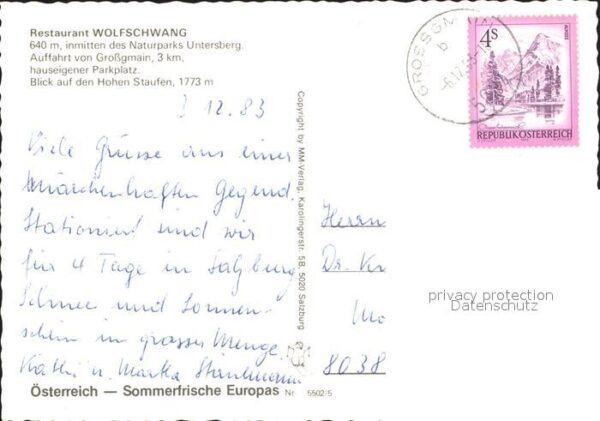 Restaurant WOLFSCHWANG
640 m, inmitten des Naturparks Untersberg.
Auffahrt von Großgmain, 3 km,
hauseigener Parkplatz.
Blick auf den Hohen Staufen, 1773 m
12.83
Viele Grüsse aus einer
märchenhaften Gegend.
Stationiert sind wir
für 4 Tage in Salzburg
Schnee und Sonnen-
schein in grosser Menge.
Kathi u. Marta
Österreich — Sommerfrische Europas Nr. 5502/5
Copyright by MM-Verlag, Karolingerstr. 5B, 5020 Salzburg
GROSSGM
b
4S
ALMSEE
REPUBLIK ÖSTERREICH
Herrn
Dr.
8038
privacy protection
Datenschutz